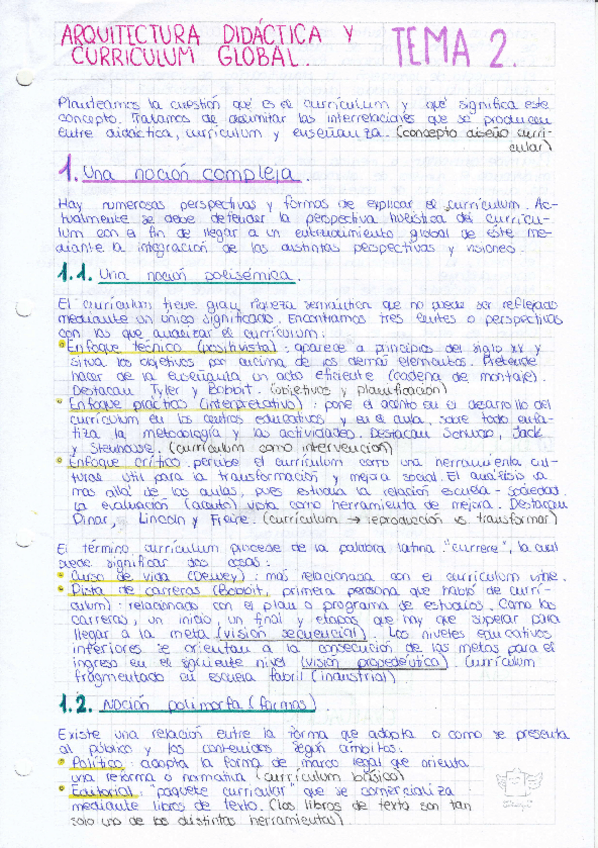 ARQUITECTURA DIDÁCTICA Y
CURRICULUM GLOBAL.
TEMA 2.
Planteamos la cuestión qué es el currículum y qué significa este
concepto. Tratamos de delimitar las interrelaciones que se producen
entre didáctica, currículum y enseñanza. (concepto diseño curri-
cular)
1. Una noción compleja.
Hay numerosas perspectivas y formas de explicar el currículum. Ac-
tualmente se debe defender la perspectiva holística del currícu-
lum con el fin de llegar a un entendimiento global de este me-
diante la integración de las distintas perspectivas y visiones.
1.1. Una noción polisémica.
El currículum tiene gran riqueza semántica que no puede ser reflejada
mediante un único significado. Encontramos tres lentes o perspectivas
con las que analizar el currículum:
• Enfoque técnico (positivista): aparece a principios del siglo XX y
sitúa los objetivos por encima de los demás elementos. Pretende
hacer de la enseñanza un acto eficiente (cadena de montaje).
Destacan Tyler y Bobbit. (objetivos y planificación)
• Enfoque práctico (interpretativo): pone el acento en el desarrollo del
currículum en los centros educativos y en el aula, sobre todo enfa-
tiza la metodología y las actividades. Destacan Schwab, Jack
y Stenhouse. (currículum como intervención)
• Enfoque crítico: percibe el currículum como una herramienta cul-
tural útil para la transformación y mejora social. El análisis va
más allá de las aulas, pues estudia la relación escuela - sociedad.
La evaluación vista como herramienta de mejora. Destacan
Pinar, Lincoln y Freire. (currículum → reproducción vs transformar)
El término currículum procede de la palabra latina "currere", la cual
puede significar dos cosas:
• Curso de vida (Dewey): más relacionada con el currículum vitae.
• Pista de carreras (Bobbit, primera persona que habló de currí-
culum): relacionado con el plan o programa de estudios. Como las
carreras, un inicio, un final y etapas que hay que superar para
llegar a la meta (visión secuencial). Los niveles educativos
inferiores se orientan a la consecución de las metas para el
ingreso en el siguiente nivel (visión propedéutica). Currículum
fragmentado en escuela fabril (industrial).
1.2. Noción polimorfa (formas).
Existe una relación entre la forma que adopta o como se presenta
al público y los contenidos según ámbitos:
• Político: adopta la forma de marco legal que orienta
una reforma o normativa (currículum básico)
• Editorial: "paquete curricular" que se comercializa
mediante libros de texto. (Los libros de texto son tan
solo uno de los distintos herramientas)